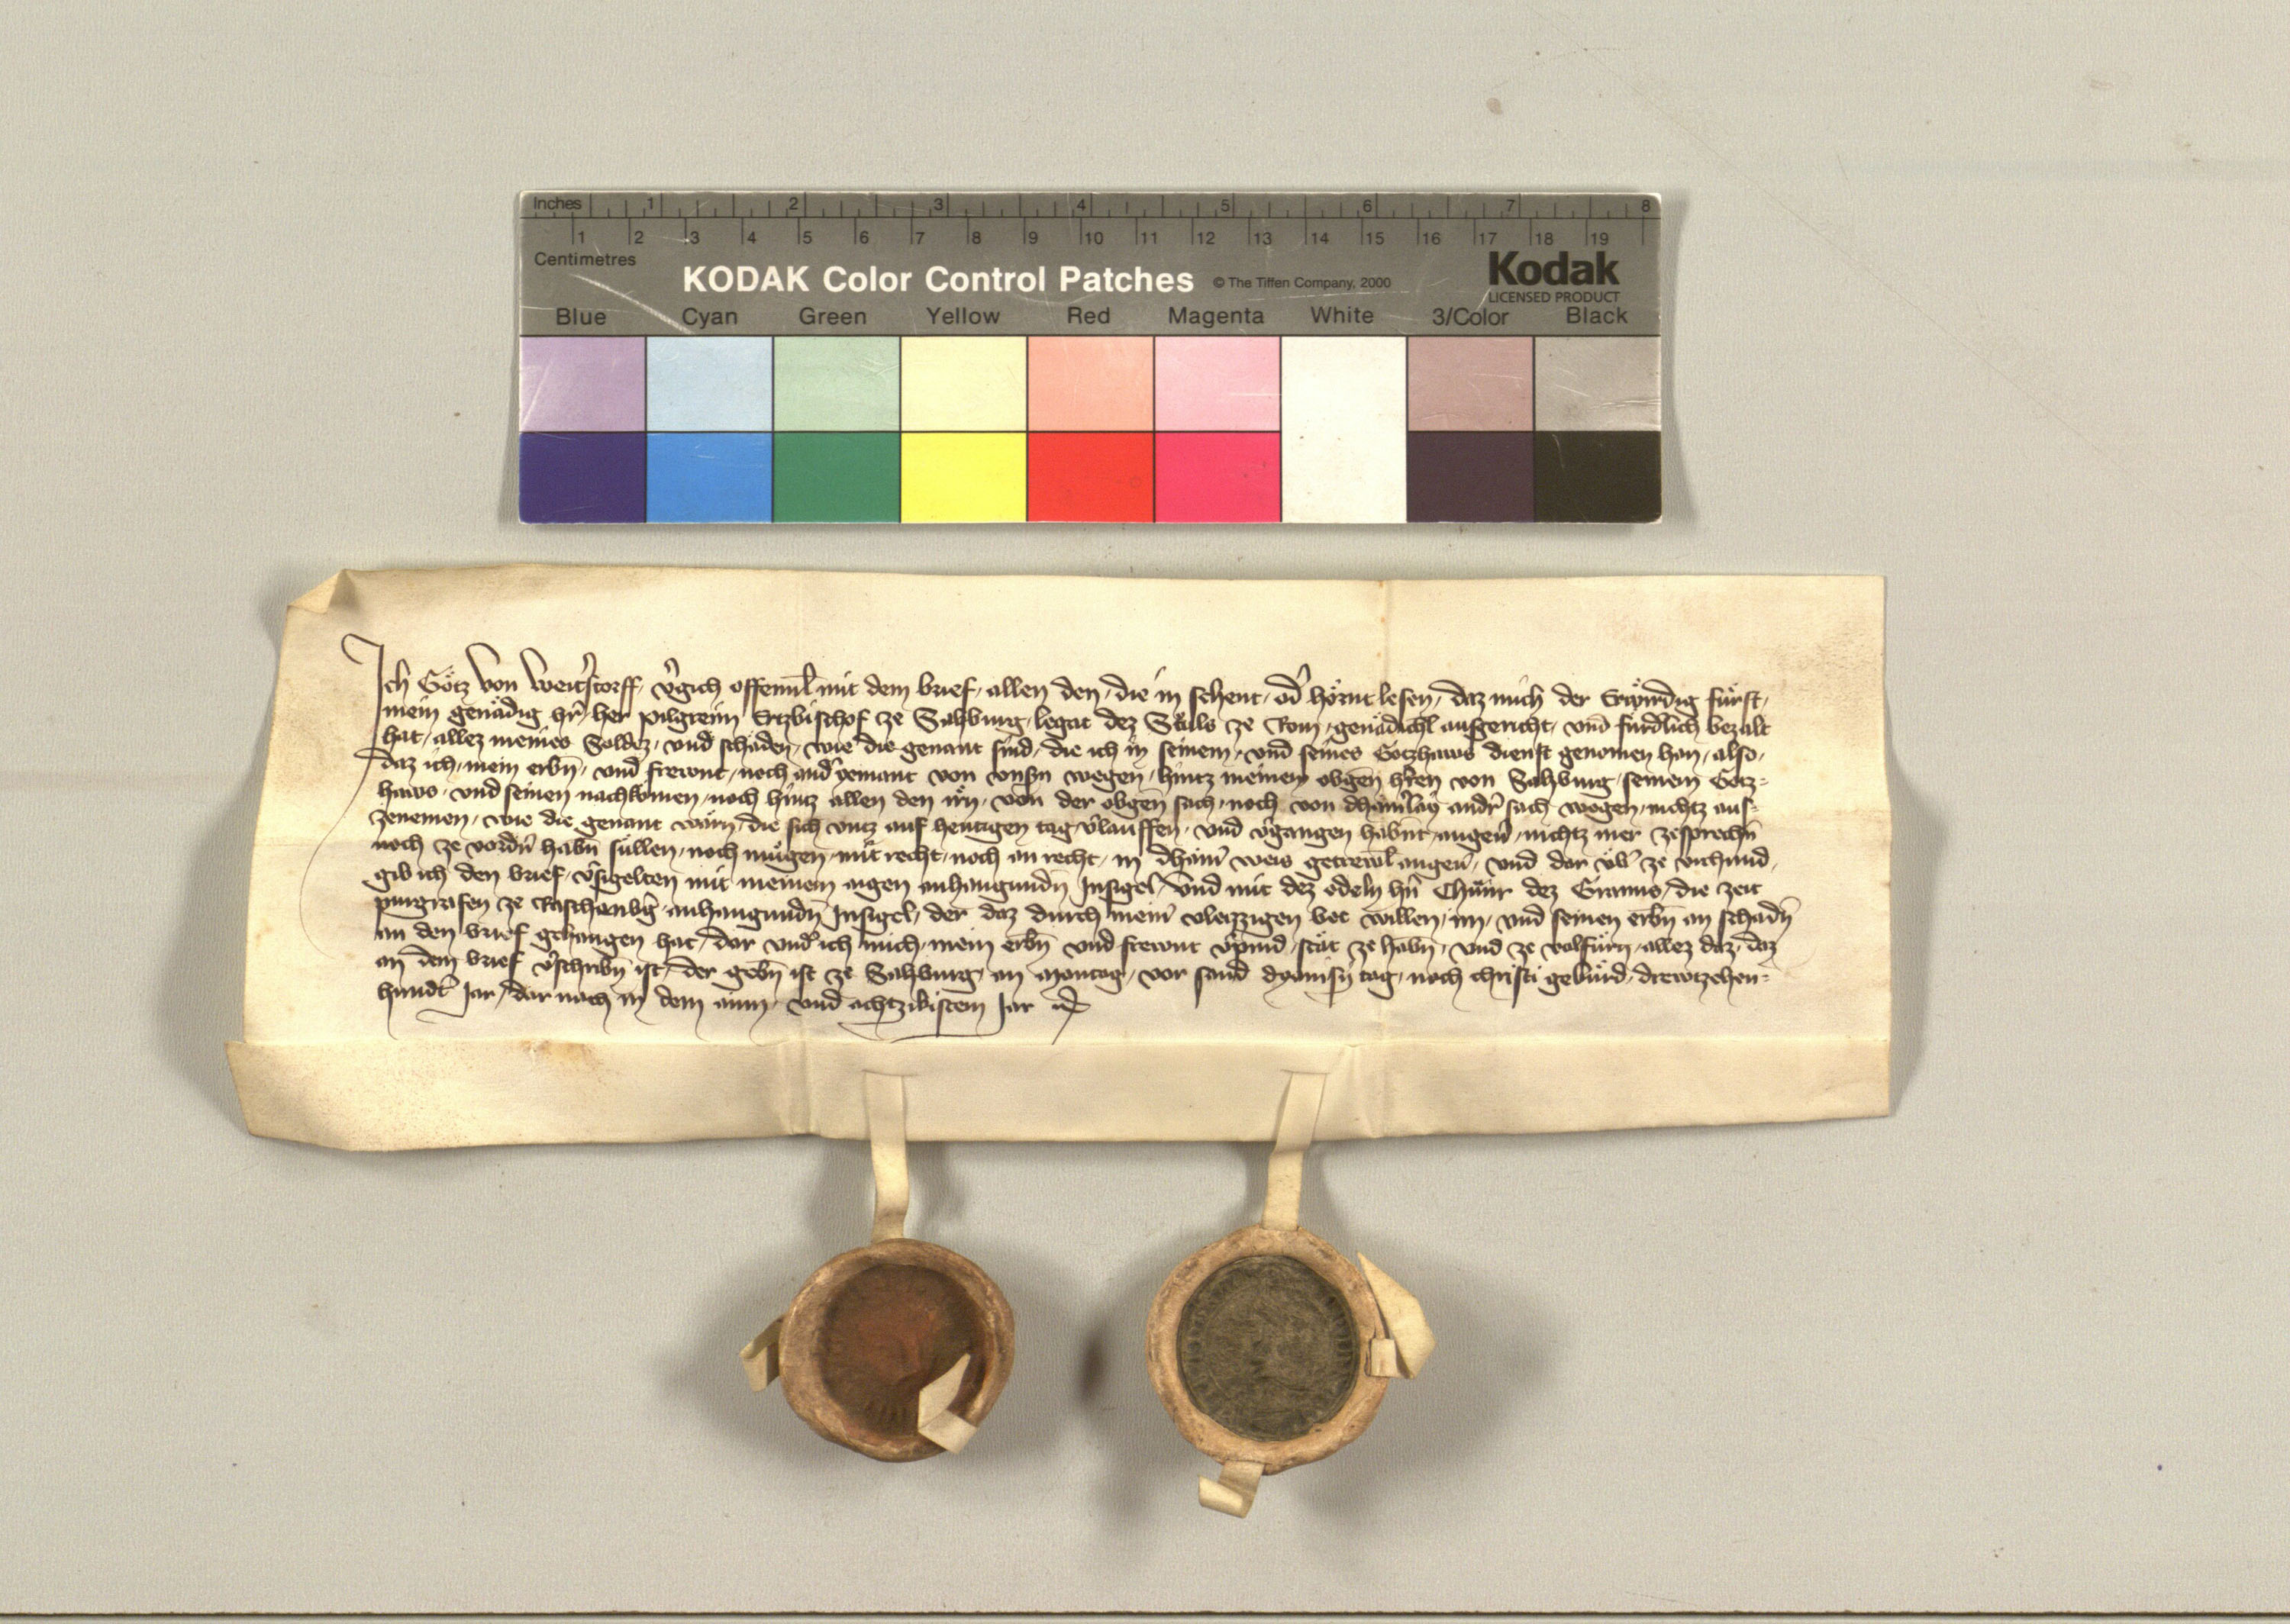 Inches 1 2 3 4 5 6 7 8
1 2 3 4 5 6 7 8 9 10 11 12 13 14 15 16 17 18 19
Centimetres
KODAK Color Control Patches © The Tiffen Company, 2000 Kodak
LICENSED PRODUCT
Blue Cyan Green Yellow Red Magenta White 3/Color Black
Ich Götz von Weitʼstorff, vʼgich offennl̄ mit dem brief, allen den, die in sehent, odʼ hörnt lesen, daz mich der Erwirdig fürst,
mein genädig hʼr, her pilgreim Ertzbischof ze Saltzburg, legat dez Stuls ze Rom, genädichl̄ ausgericht, vnd fürdlich bezalt
hat, allez meines Soldez, vnd schäden, wie die genant sind, die ich in seinem, vnd seines Gotzhaws dienst genomen han, also,
daz ich, mein erbn̄, vnd frewnt, noch andʼ yemant von vnsʼn wegen, hintz meinem obgen̄ hʼren von Saltzburg, seinem Gotz-
haws, vnd seinen nachkomen, noch hintz allen den irʼn, von der obgen̄ sach, noch von dhainʼlay andʼr sach wegen, nichtz aus-
zenemen, wie die genant wärn, die sich vntz auf hewtigen tag vʼlauffen, vnd vʼgangen habn̄t, nichtz mer zesprechn̄
noch ze vordʼn̄ habn̄ süllen, noch mügen, mit recht, noch an recht, in dhainʼ weis getrewl̄, vnd dar vbʼ ze vrchund,
gib ich den brief, vʼsigelten mit meinem aigen anhangundn̄ Insigel, vnd mit dez edeln hʼn Chunr dez Grans, die zeit
purgrafen ze Raschenbʼg, anhangundn̄ Insigel, der daz durch meinʼ vleizzigen bet willen, im, vnd seinen erbn̄ an schadn̄
an den brief gehangen hat, dar vndʼ ich mich, mein erbn̄ vnd frewnt vʼpind, stät ze habn̄, vnd ze volfürn, allez daz, daz
an dem brief vʼschribn̄ ist, der gebn̄ ist ze Saltzburg, an Montag, vor sand dyonisy tag, nach christi gebürd, drewtzehen-
hundtʼ Jar, dar nach in dem ainn, vnd achtzikistem Jar